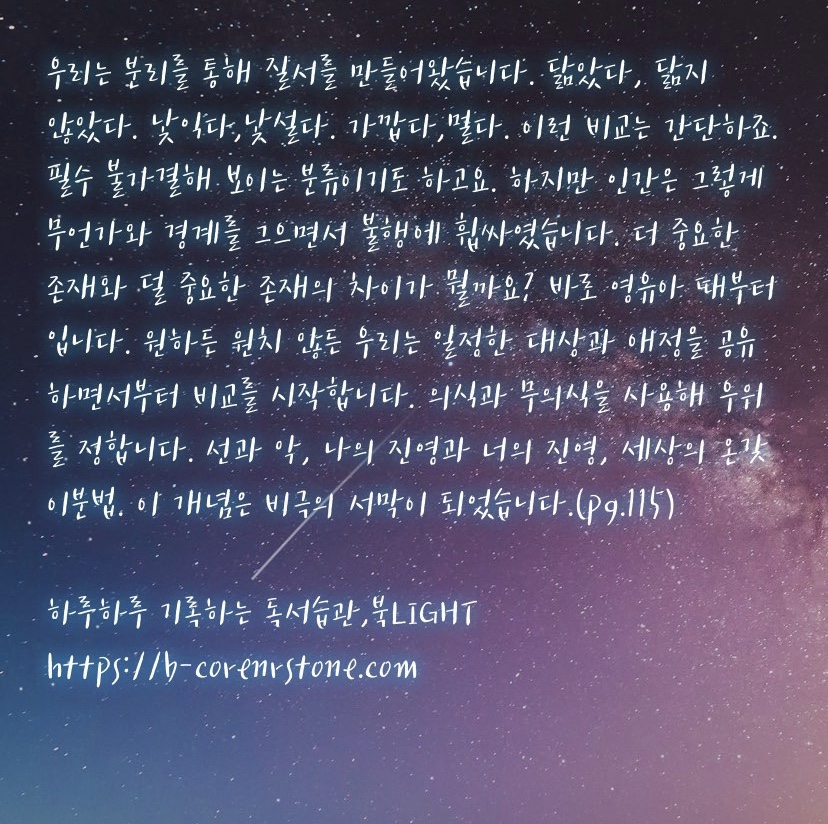 우리는 분리를 통해 질서를 만들어왔습니다. 닮았다, 닮지
않았다. 낯익다,낯설다. 가깝다,멀다. 이런 비교는 간단하죠.
필수 불가결해 보이는 분류이기도 하고요. 하지만 인간은 그렇게
무언가와 경계를 그으면서 불행에 휩싸였습니다. 더 중요한
존재와 덜 중요한 존재의 차이가 뭘까요? 바로 영유아 때부터
입니다. 원하든 원치 않든 우리는 일정한 대상과 애정을 공유
하면서부터 비교를 시작합니다. 의식과 무의식을 사용해 우위
를 정합니다. 선과 악, 나의 진영과 너의 진영, 세상의 온갖
이분법. 이 개념은 비극의 서막이 되었습니다.(pg.115)
하루하루 기록하는 독서습관,북LIGHT
https://b-corenrstone.com